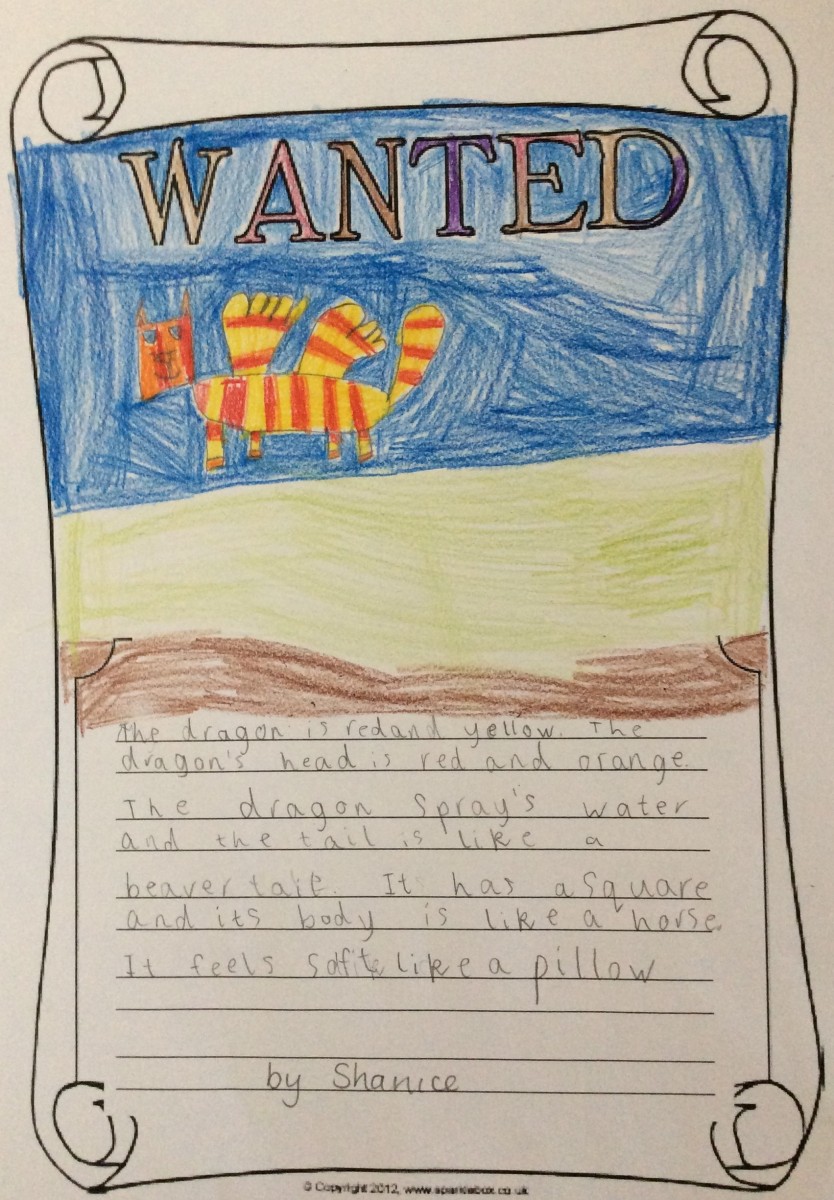 WANTED
The dragon is redand yellow. The
dragon's head is red and orange.
The dragon Spray's water
and the tail is like a
beaver tail. It has a Square
and its body is like a horse.
It feels like a pillow
by Shanice
© Copyright 2012, www.sparklebox.co.uk